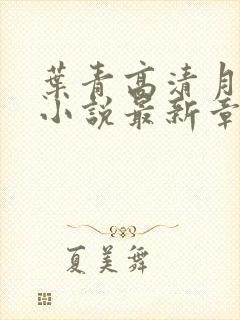 葉青高清月
小說最新章
夏美舞